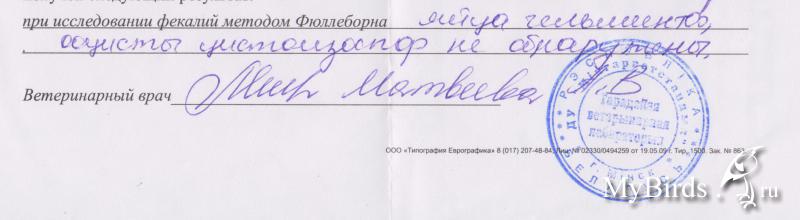 при исследовании фекалий методом Фюллеборна яйца гельминтов,
ооцисты цистоизоспор не обнаружены.
Ветеринарный врач Матвеева А.В
ООО «Типография Еврографика» 8 (017) 207-48-84 Лиц. № 02330/0494259 от 19.05.09 г. Тир. 1500. Зак. № 863
Гарадская
ветэрынарная
лабараторыя
г. Мінск
MyBirds.ru